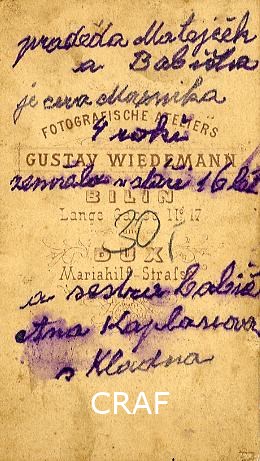 pradeda Matějček
a Babička
je cera Mařenka
FOTOGRAFISCHE ATELIERS
4 roků
GUSTAV WIEDEMANN
zemřela v stáří 16 let
BILIN
Lange Gasse II 17
30
DUX
Mariahilf-Strasse
a sestra babič
Ana Kaplanova
s Kladna
CRAF